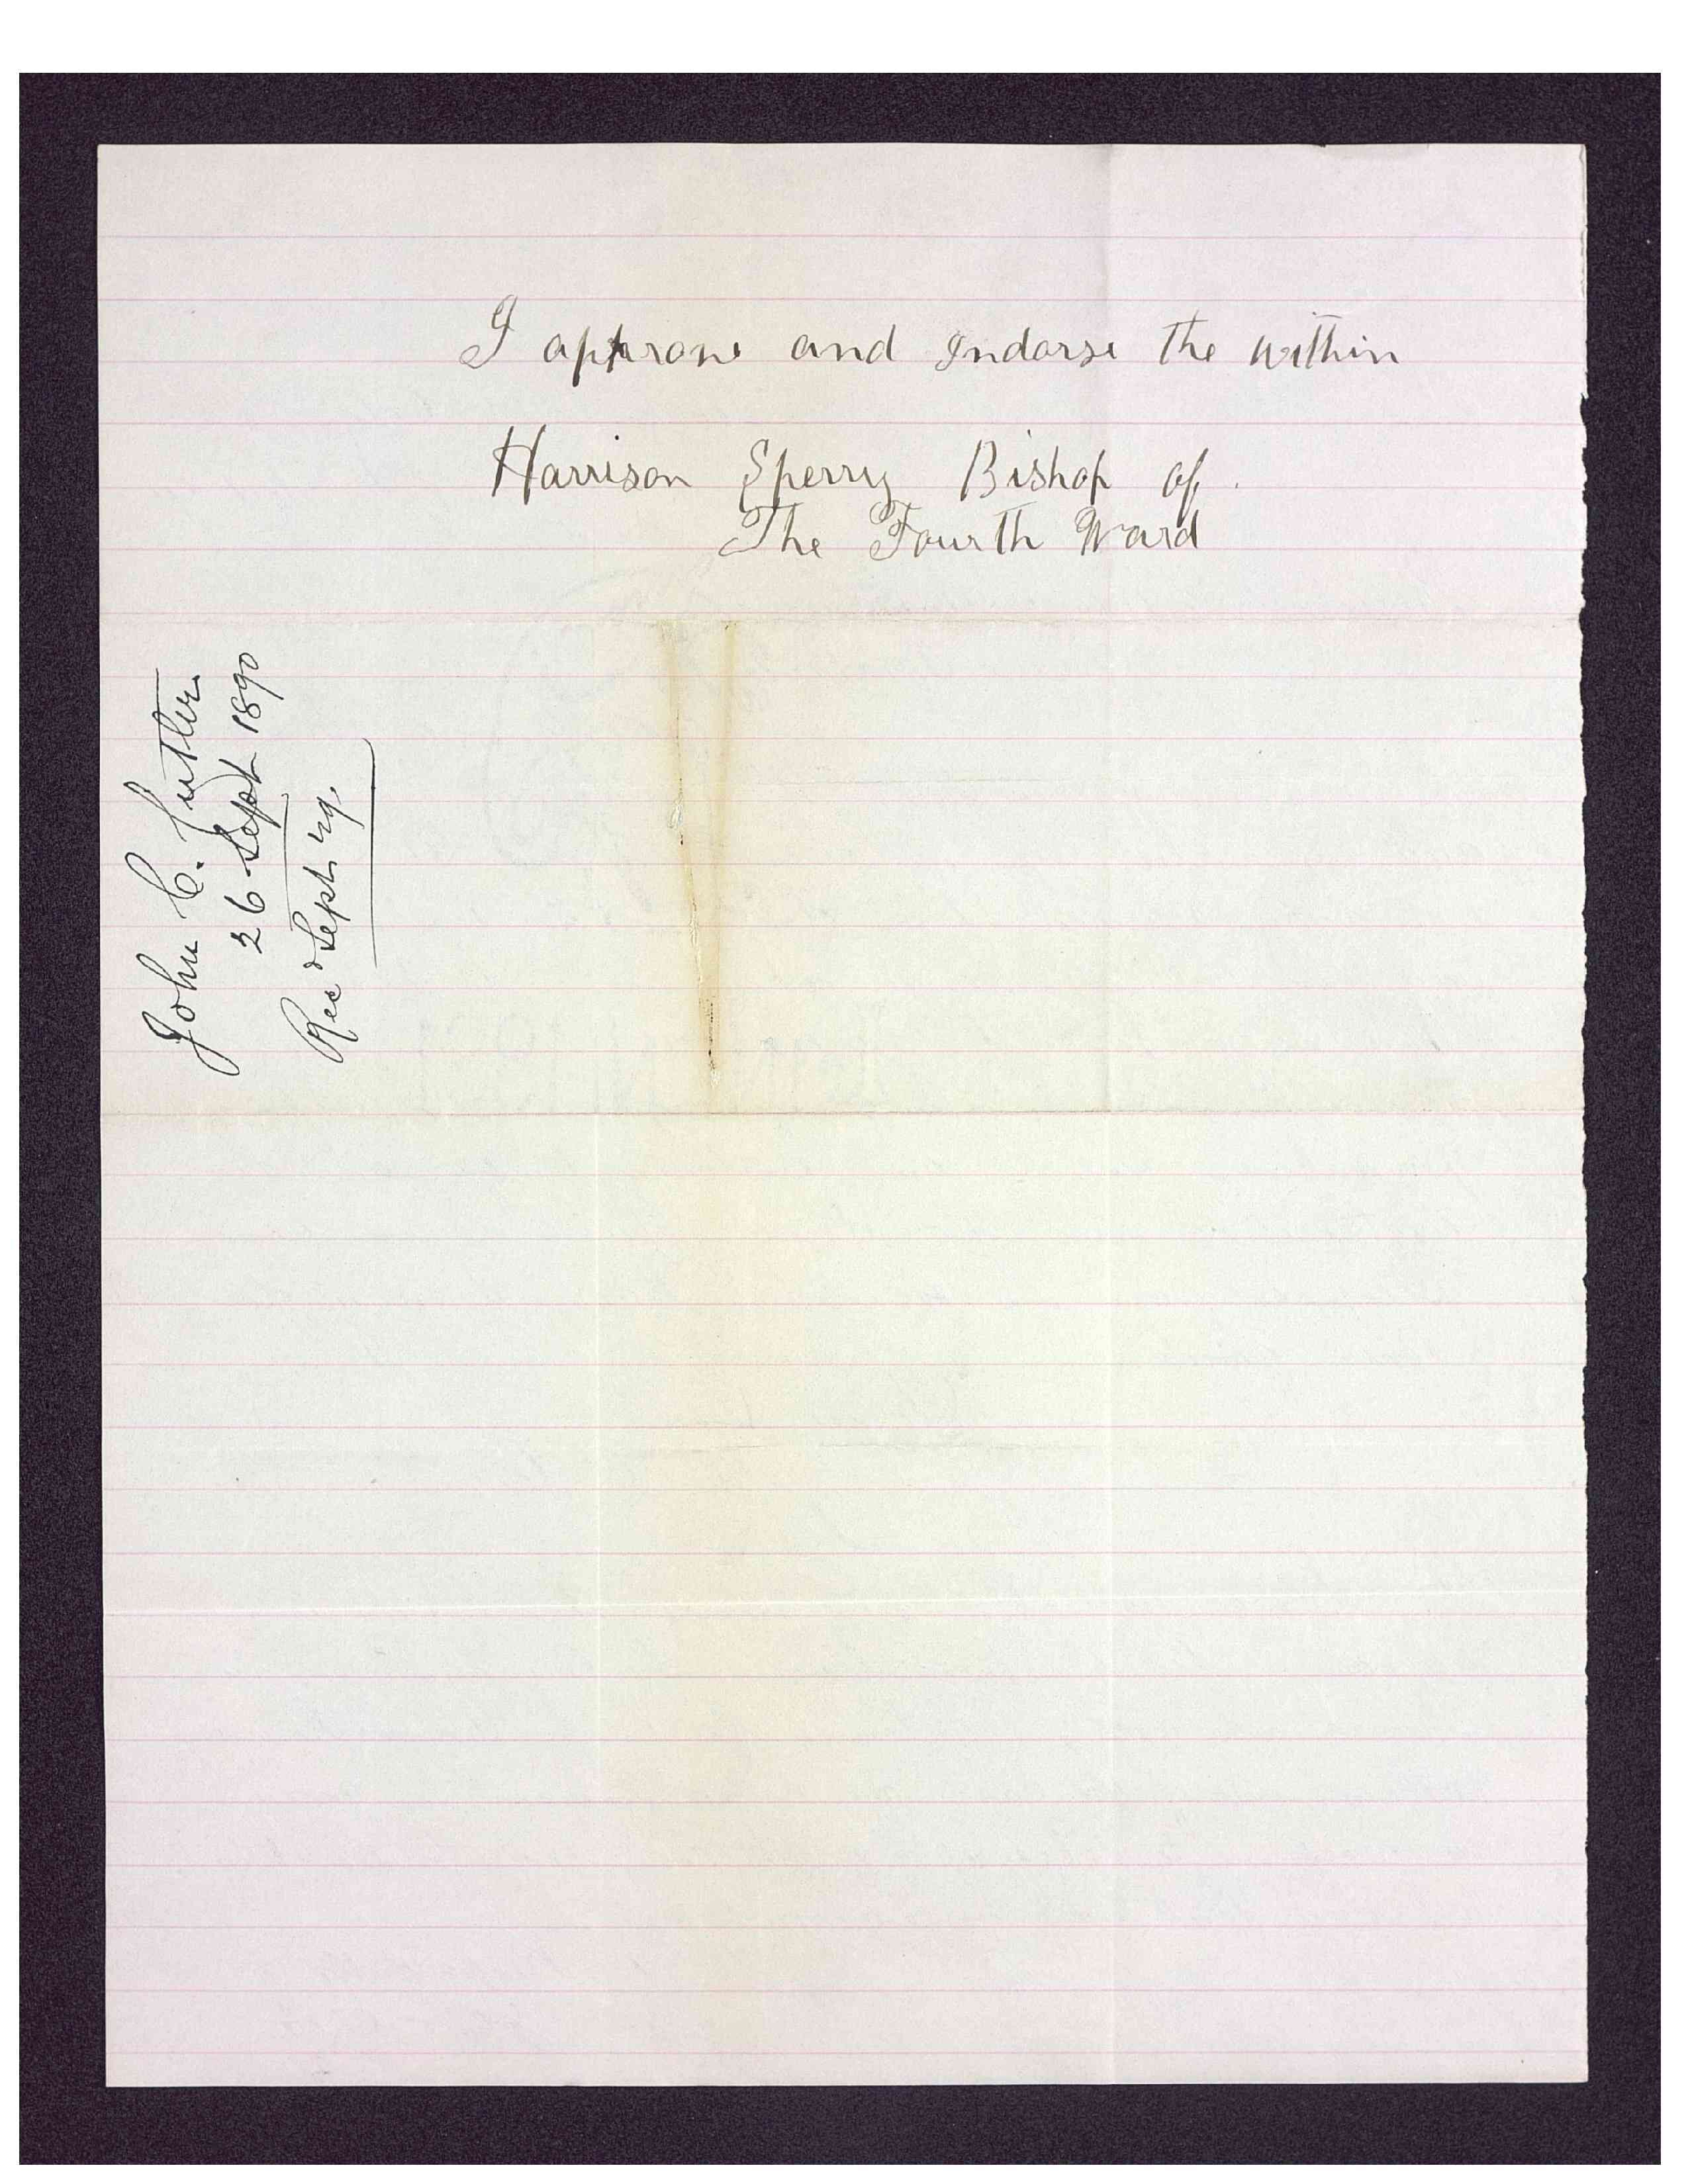 I approve and Indorse the within
Harrison Sperry Bishop of
The Fourth Ward
John C. Cutler
26 Sept 1890
Recd Sept. 29.